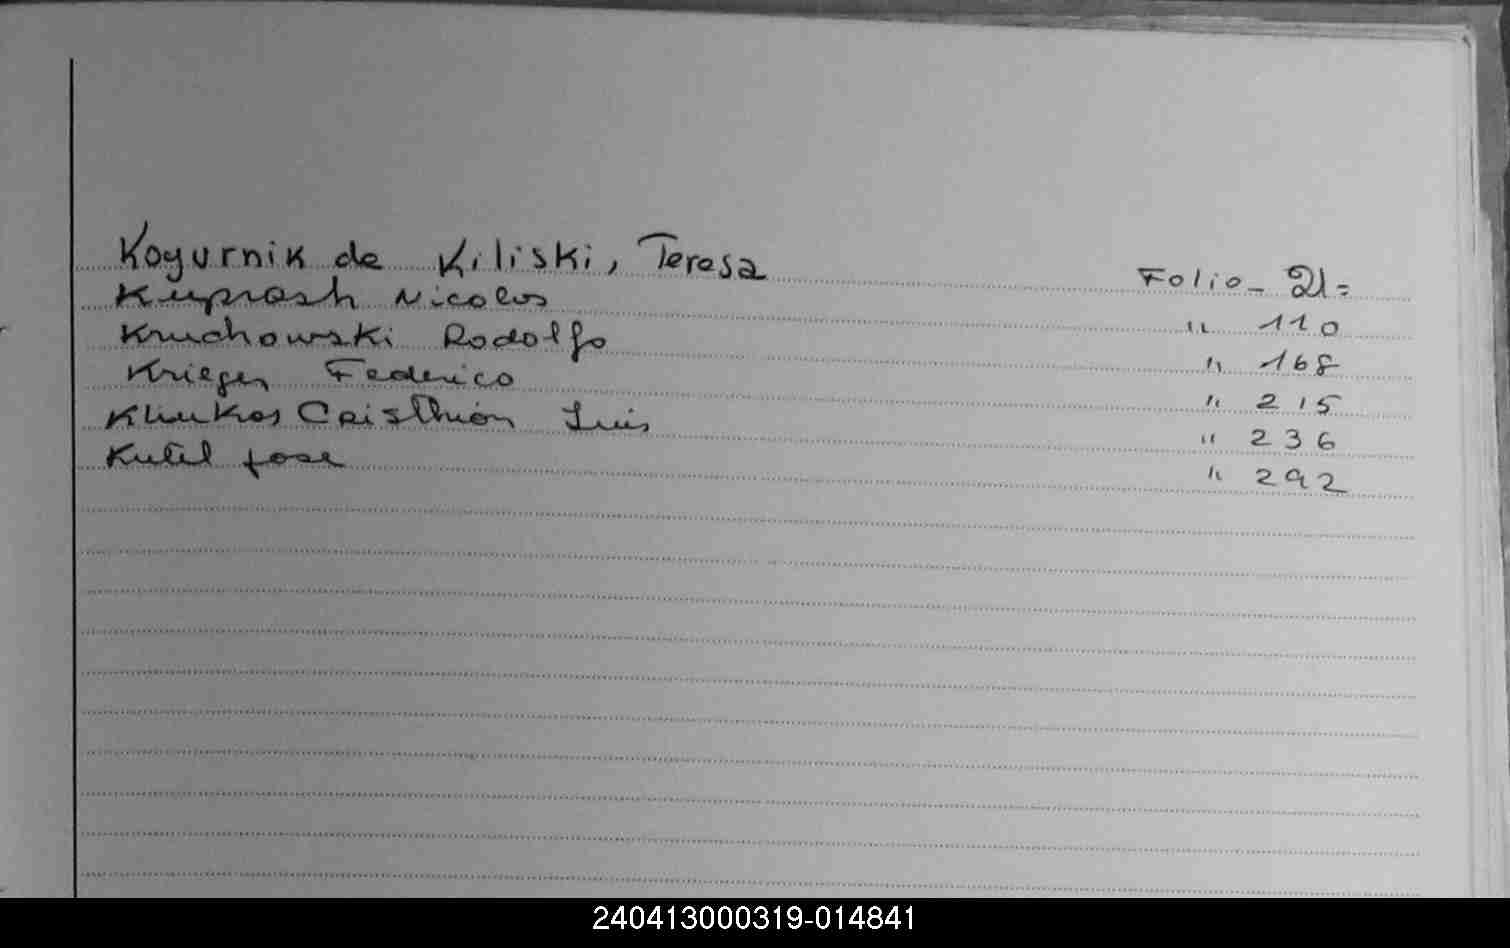 Kogurnik de Kiliski, Teresa Folio - 21=
Kuprash Nicolas " 110
Kruchowski Rodolfo " 168
Krieger Federico " 215
Cristhián Luis " 236
Kutel Jose " 292
240413000319-014841